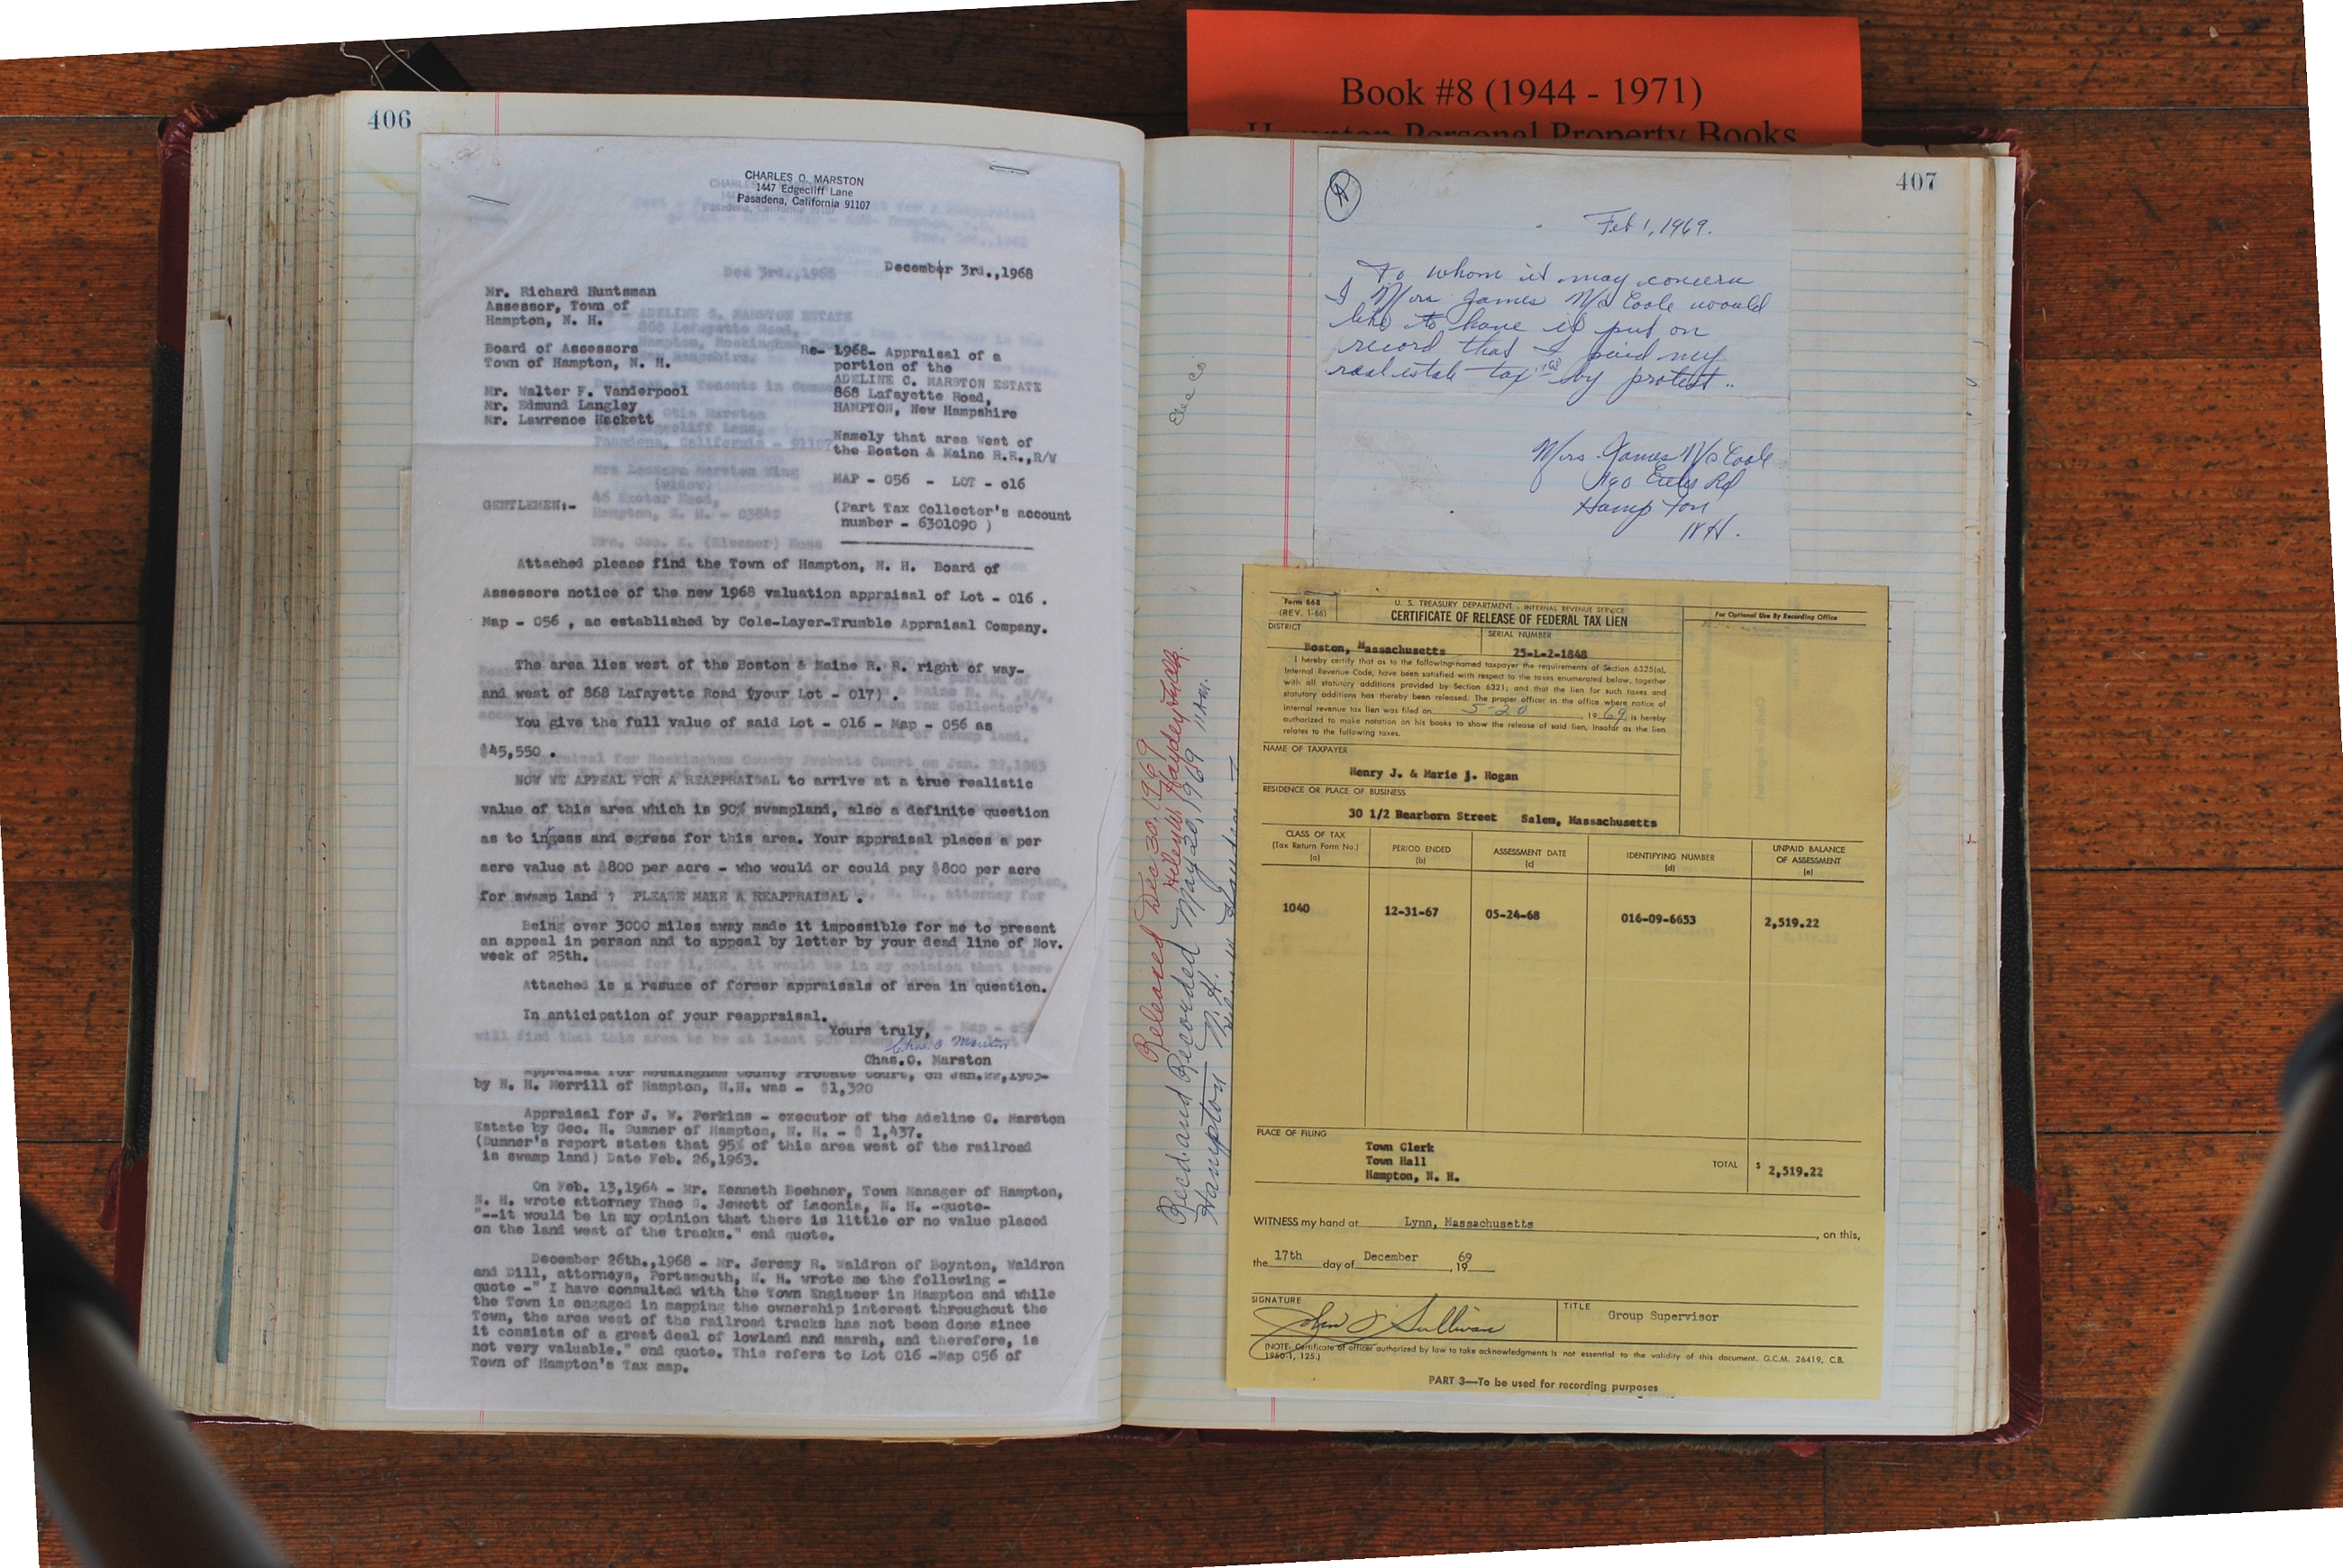 Book #8 (1944 - 1971)
Hampton Personal Property Books
406
CHARLES O. MARSTON
1447 Edgecliff Lane
Pasadena, California 91107
December 3rd.,1968
Mr. Richard Huntsman
Assessor, Town of
Hampton, N. H.
Board of Assessors
Town of Hampton, N. H.
Mr. Walter F. Vanderpool
Mr. Edmund Langley
Mr. Lawrence Hackett
Re- 1968- Appraisal of a
portion of the
ADELINE C. MARSTON ESTATE
868 Lafayette Road,
HAMPTON, New Hampshire
Namely that area West of
the Boston & Maine R.R.,R/W
MAP - 056 - LOT - 016
(Part Tax Collector's account
number - 6301090 )
GENTLEMEN:-
Attached please find the Town of Hampton, N. H. Board of
Assessors notice of the new 1968 valuation appraisal of Lot - 016 .
Map - 056 , as established by Cole-Layer-Trumble Appraisal Company.
The area lies west of the Boston & Maine R. R. right of way-
and west of 868 Lafayette Road (your Lot - 017) .
You give the full value of said Lot - 016 - Map - 056 as
$45,550 .
NOW WE APPEAL FOR A REAPPRAISAL to arrive at a true realistic
value of this area which is 90% swampland, also a definite question
as to ingess and egress for this area. Your appraisal places a per
acre value at $800 per acre - who would or could pay $800 per acre
for swamp land ? PLEASE MAKE A REAPPRAISAL .
Being over 3000 miles away made it impossible for me to present
an appeal in person and to appeal by letter by your dead line of Nov.
week of 25th.
Attached is a resume of former appraisals of area in question.
In anticipation of your reappraisal.
Yours truly,
Chas. O. Marston
Chas.O. Marston
Appraisal for Rockingham County Probate Court, on Jan.22,1963-
by N. H. Merrill of Hampton, N.H. was - $1,320
Appraisal for J. W. Perkins - executor of the Adeline C. Marston
Estate by Geo. H. Sumner of Hampton, N. H. - $ 1,437.
(Sumner's report states that 95% of this area west of the railroad
is swamp land) Date Feb. 26,1963.
On Feb. 13,1964 - Mr. Kenneth Boehner, Town Manager of Hampton,
N. H. wrote attorney Theo S. Jewett of Laconia, N. H. -quote-
"--it would be in my opinion that there is little or no value placed
on the land west of the tracks." end quote.
December 26th.,1968 - Mr. Jeremy R. Waldron of Boynton, Waldron
and Dill, attorneys, Portsmouth, N. H. wrote me the following -
quote -" I have consulted with the Town Engineer in Hampton and while
the Town is engaged in mapping the ownership interest throughout the
Town, the area west of the railroad tracks has not been done since
it consists of a great deal of lowland and marsh, and therefore, is
not very valuable." end quote. This refers to Lot 016 -Map 056 of
Town of Hampton's Tax map.
407
Feb 1, 1969.
To whom it may concern
I Mrs James McCoole would
like to have it put on
record that I paid my
real estate tax '68 by protest..
Mrs. James McCoole
Hampton
N H.
Elec Co
Released Dec 30, 1969
Helen W. Hayden, Clerk.
Rec'd. and Recorded May 20, 1969 11 A.M.
Hampton N. H.
Form 668
(REV. 1-66)
U. S. TREASURY DEPARTMENT - INTERNAL REVENUE SERVICE
CERTIFICATE OF RELEASE OF FEDERAL TAX LIEN
For Optional Use By Recording Office
DISTRICT
SERIAL NUMBER
Boston, Massachusetts
25-L-2-1848
I hereby certify that as to the following-named taxpayer the requirements of Section 6325(a),
Internal Revenue Code, have been satisfied with respect to the taxes enumerated below, together
with all statutory additions provided by Section 6321; and that the lien for such taxes and
statutory additions has thereby been released. The proper officer in the office where notice of
internal revenue tax lien was filed on 5-20, 19 69, is hereby
authorized to make notation on his books to show the release of said lien, insofar as the lien
relates to the following taxes.
NAME OF TAXPAYER
Henry J. & Marie J. Hogan
RESIDENCE OR PLACE OF BUSINESS
30 1/2 Bearborn Street Salem, Massachusetts
CLASS OF TAX
(Tax Return Form No.)
(a)
PERIOD ENDED
(b)
ASSESSMENT DATE
(c)
IDENTIFYING NUMBER
(d)
UNPAID BALANCE
OF ASSESSMENT
(e)
1040 12-31-67 05-24-68 016-09-6653 2,519.22
PLACE OF FILING
Town Clerk
Town Hall
Hampton, N. H.
TOTAL $ 2,519.22
WITNESS my hand at Lynn, Massachusetts, on this,
the 17th day of December, 1969
SIGNATURE
John J. Sullivan
TITLE
Group Supervisor
(NOTE: Certificate of officer authorized by law to take acknowledgments is not essential to the validity of this document. G.C.M. 26419, C.B.
1950-1, 125.)
PART 3—To be used for recording purposes